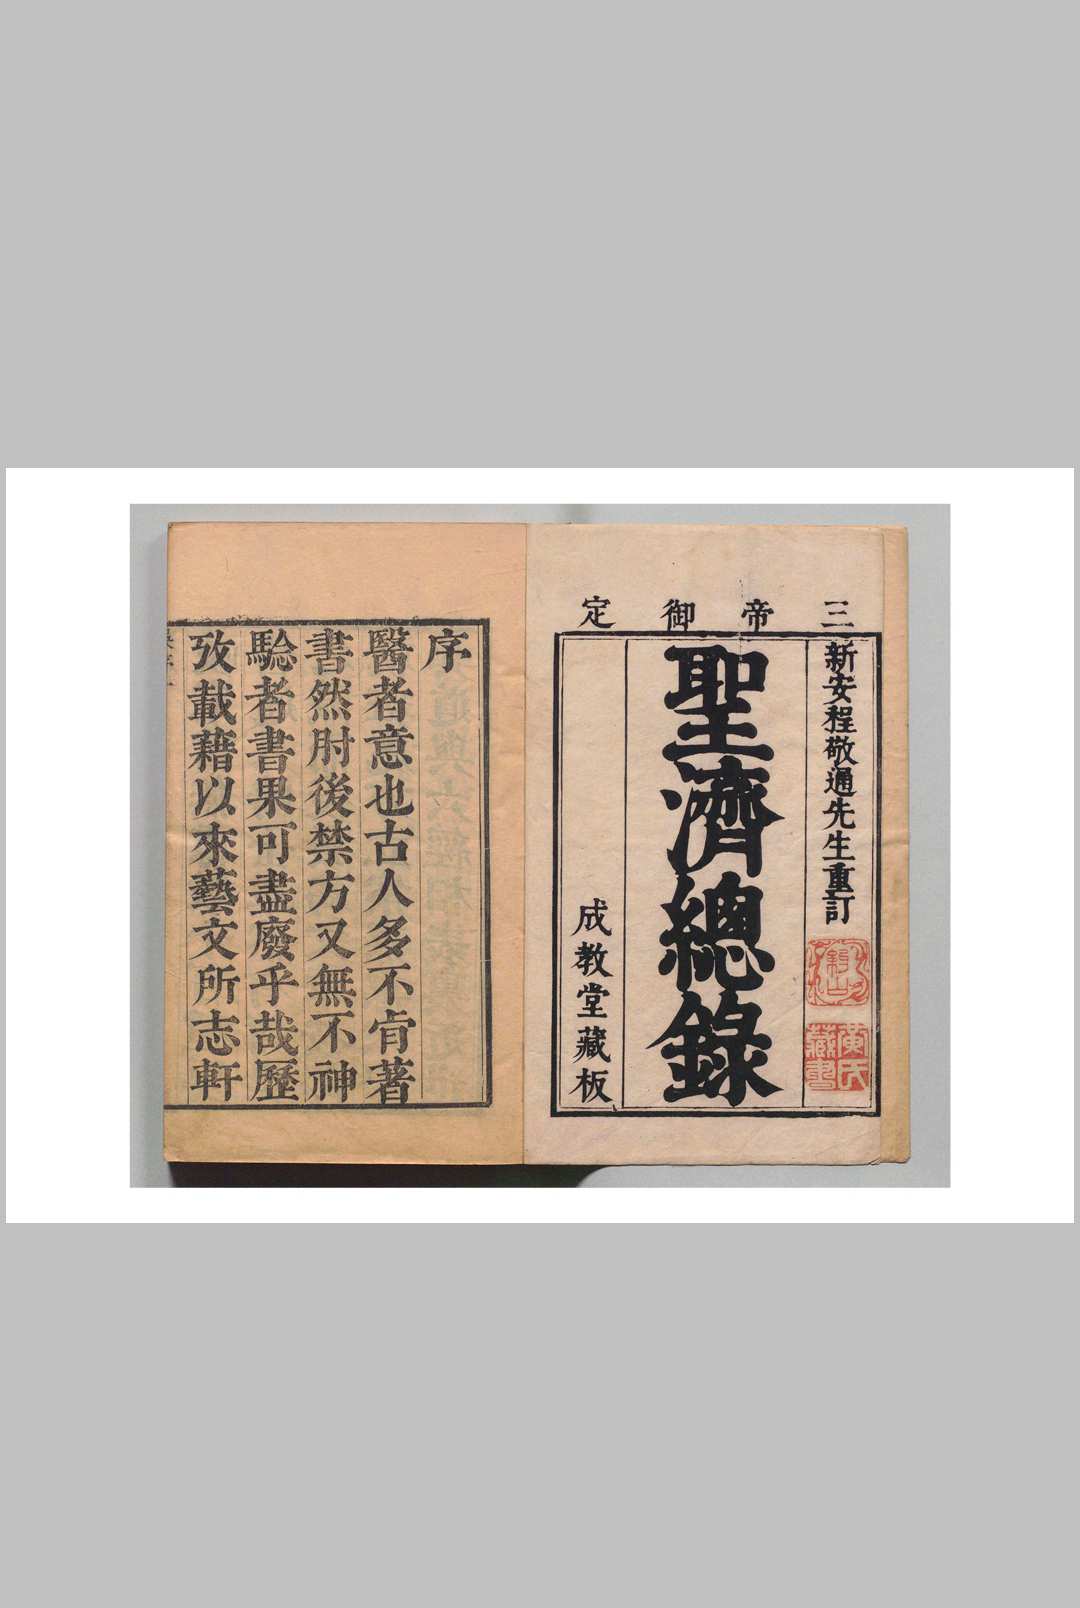 三帝御定
新安程敬通先生重訂
聖濟總錄
成教堂藏板
黃氏藏書
序
醫者意也古人多不肯著
書然肘後禁方又無不神
驗者書果可盡廢乎哉歷
攷載藉以來藝文所志軒